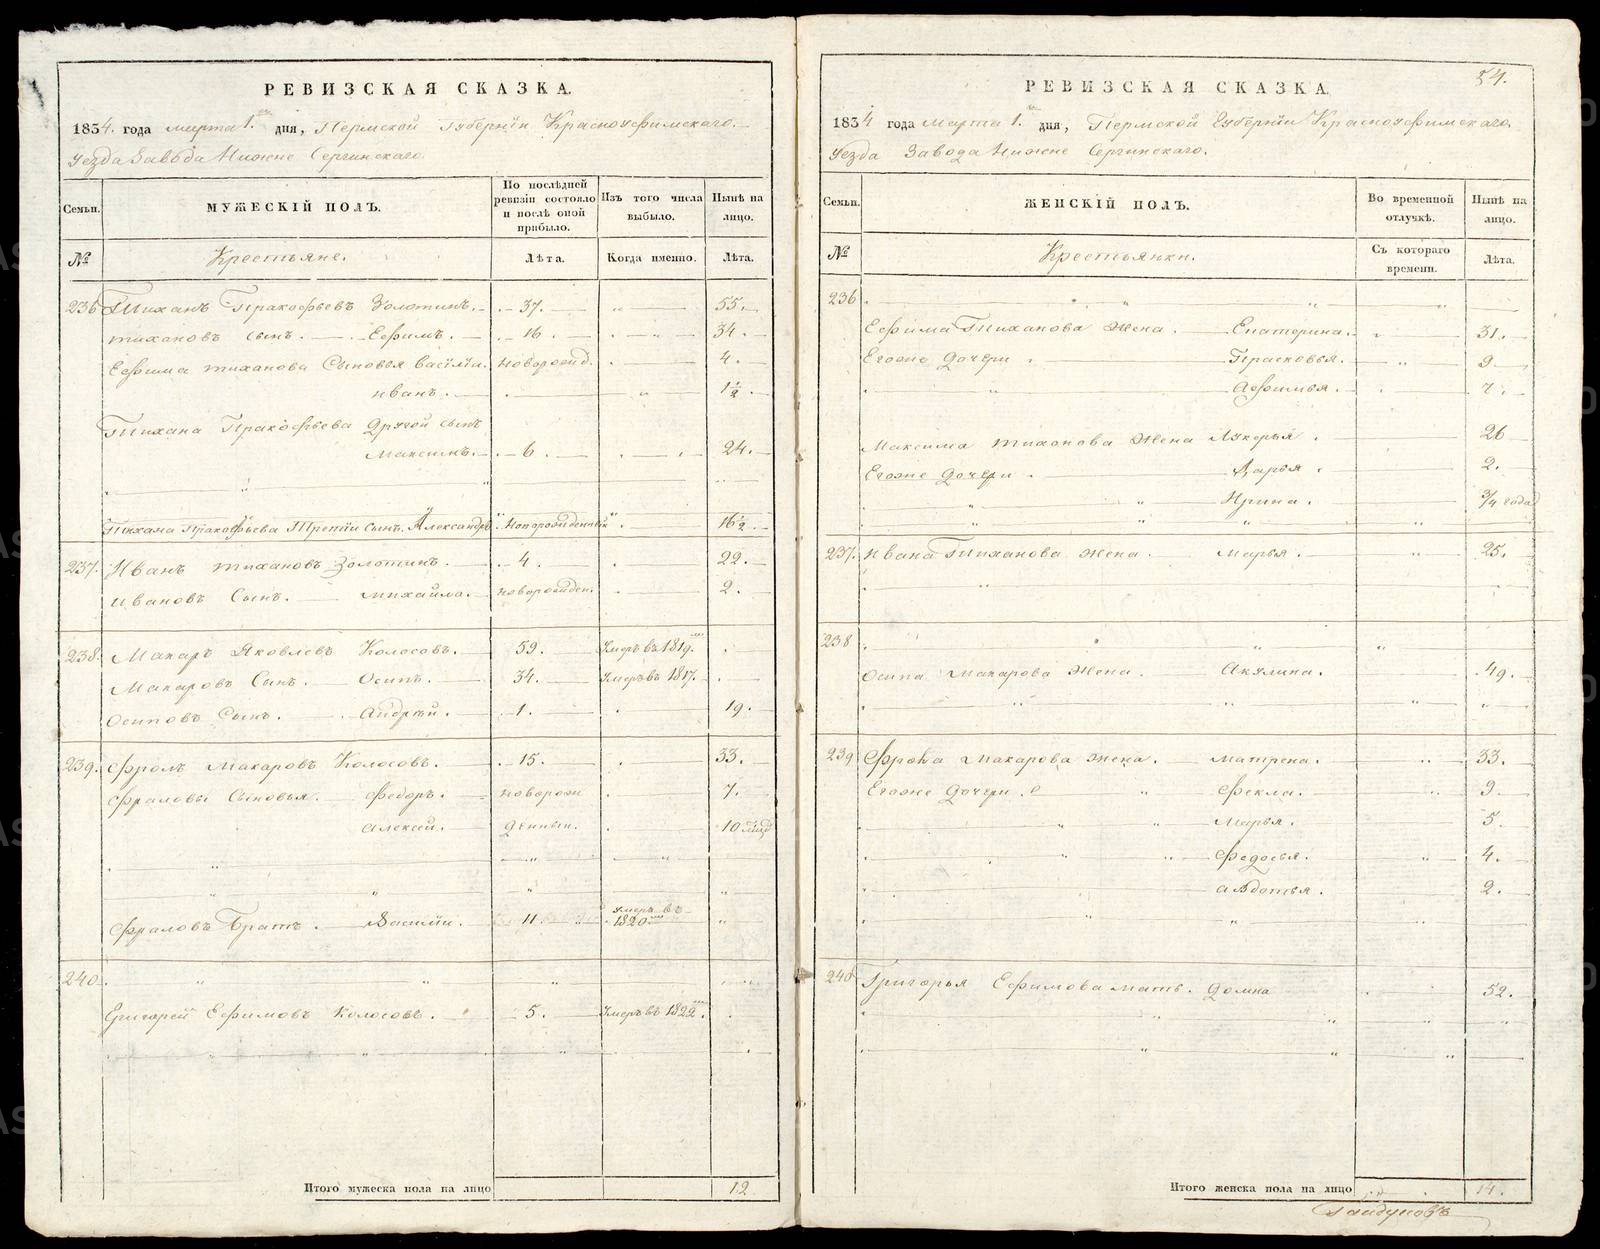 РЕВИЗСКАЯ СКАЗКА.
1834. года марта 1. дня, Пермской Губерніи Красноуфимскаго.
Уезда Завода Нижне Сергинскаго
Семьи.
МУЖЕСКІЙ ПОЛЪ.
По послѣдней ревизіи состояло и послѣ оной прибыло.
Изъ того числа выбыло.
Нынѣ на лицо.
№
Крестьяне.
Лѣта.
Когда именно.
Лѣта.
236 Тиханъ Пракофьевъ Золотинъ. 37. 55.
Тихановъ сынъ. Ефимъ. 16. 34.
Ефима Тиханова Сыновья Василіи. новорожд. 4.
иванъ. 1½.
Тихана Пракофьева Другой сынъ
Максимъ. 6. 24.
Тихана Пракофьева Третіи сынъ. Александръ Новорожденный 16½.
237. Иванъ Тихановъ Золотинъ. 4. 22.
Ивановъ Сынъ. михайла. новорожден. 2.
238. Макаръ Яковлевъ Колосовъ. 59. Умеръ въ 1819.
Макаровъ Сынъ. Осипъ. 34. Умеръ въ 1817.
Осиповъ Сынъ. Андрѣй. 1. 19.
239. Фролъ Макаровъ Колосовъ. 15. 33.
Фраловы Сыновья. Федоръ. новорож 7.
Алексѣй. денныи. 10 мѣсяц
Фраловъ Братъ. Василіи. 11. умеръ въ 1820.
240.
Григорей Ефимовъ Колосовъ. 5. Умеръ въ 1822.
Итого мужеска пола на лицо 12
РЕВИЗСКАЯ СКАЗКА.
54.
1834 года марта 1. дня, Пермской Губерніи Красноуфимскаго.
Уезда Завода Нижне Сергинскаго.
Семьи.
ЖЕНСКІЙ ПОЛЪ.
Во временной отлучкѣ.
Нынѣ на лицо.
№
Крестьянки.
Съ котораго времени.
Лѣта.
236
Ефима Тиханова Жена. Екатерина. 31.
Егоже Дочери. Прасковья. 9
Афимья. 7.
Максима Тиханова Жена Лукерья. 26
Егоже Дочери. Дарья. 2.
Ирина. 3/4 года
237. Ивана Тиханова жена. Марья. 25.
238
Осипа Макарова Жена. Акулина. 49.
239 Фрола Макарова жена. матрена. 33.
Егоже Дочери. Фекла. 9.
Марья. 5.
Федосья. 4.
авдотья. 2.
240 Григорья Ефимова мать. Домна 52.
Итого женска пола на лицо 14.